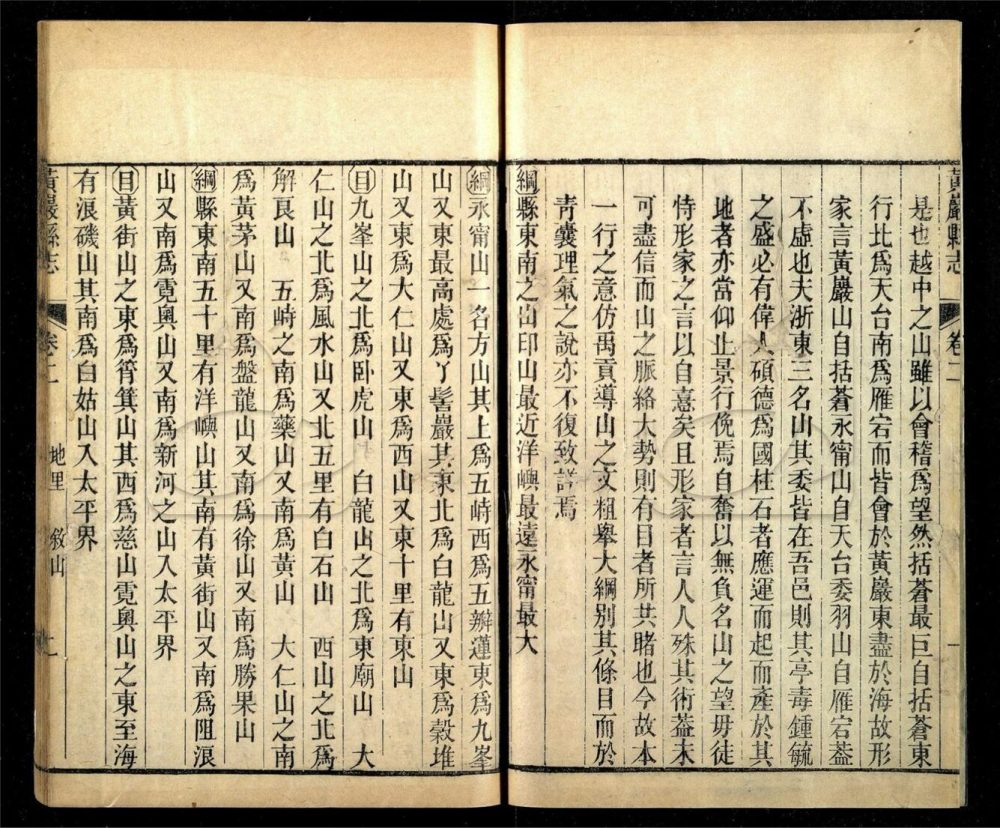 黃巖縣志 卷二 一
是也越中之山雖以會稽爲望然括蒼最巨自括蒼東
行北爲天台南爲雁宕而皆會於黃巖東盡於海故形
家言黃巖山自括蒼永甯山自天台委羽山自雁宕葢
不虛也夫浙東三名山其委皆在吾邑則其亭毒鍾毓
之盛必有偉人碩德爲國柱石者應運而起而產於其
地者亦當仰止景行俛焉自奮以無負名山之望毋徒
恃形家之言以自憙矣且形家者言人人殊其術葢未
可盡信而山之脈絡大勢則有目者所共睹也今故本
一行之意仿禹貢導山之文粗舉大綱别其條目而於
靑囊理氣之說亦不復致詳焉
綱縣東南之山印山最近洋嶼最遠永甯最大
綱永甯山一名方山其上爲五峙西爲五瓣蓮東爲九峯
山又東最高處爲丫髻巖其東北爲白龍山又東爲穀堆
山又東爲大仁山又東爲西山又東十里有東山
目九峯山之北爲卧虎山 白龍山之北爲東廟山 大
仁山之北爲風水山又北五里有白石山 西山之北爲
解良山 五峙之南爲藥山又南爲黃山 大仁山之南
爲黃茅山又南爲盤龍山又南爲徐山又南爲勝果山
綱縣東南五十里有洋嶼山其南有黃街山又南爲阻浪
山又南爲霓奧山又南爲新河之山入太平界
目黃街山之東爲筲箕山其西爲慈山霓奧山之東至海
有浪磯山其南爲白姑山入太平界
黃巖縣志 卷二 地里 敘山